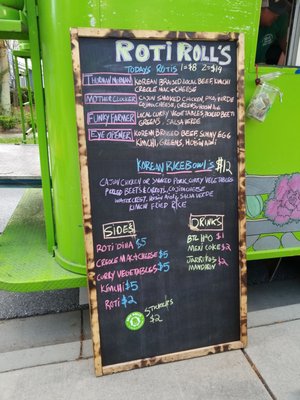 ROTI ROLL'S
TODAYS ROTIS 1=$8 2=$19
THURMAN MURMAN
KOREAN BRAISED LOCAL BEEF, KIMCHI
CREOLE MAC+CHEESE
MOTHER CLUCKER
CAJUN SMOKED CHICKEN, SALSA VERDE
CREOLE MAC+CHEESE, GREENS
FUNKY FARMER
LOCAL CURRY VEGETABLES, PICKLED BEETS
GREENS, SALSA VERDE
EYE OPENER
KOREAN BRAISED BEEF, SUNNY EGG
KIMCHI, GREENS, HOISIN AIOLI
KOREAN RICE BOWL'S $12
CAJUN CHICKEN OR SMOKED PORK, CURRY VEGETABLES
PICKLED BEETS & CARROTS, CAJUN CHEESE
SALSA VERDE
KIMCHI FRIED RICE
SIDES
ROTI DINA $5
CREOLE MAC+CHEESE $5
CURRY VEGETABLES $5
KIMCHI $5
ROTI $2
DRINKS
BTL H2O $1
MEXI COKE $2
JARRITOS $2
MANDARIN
STICKERS
$2